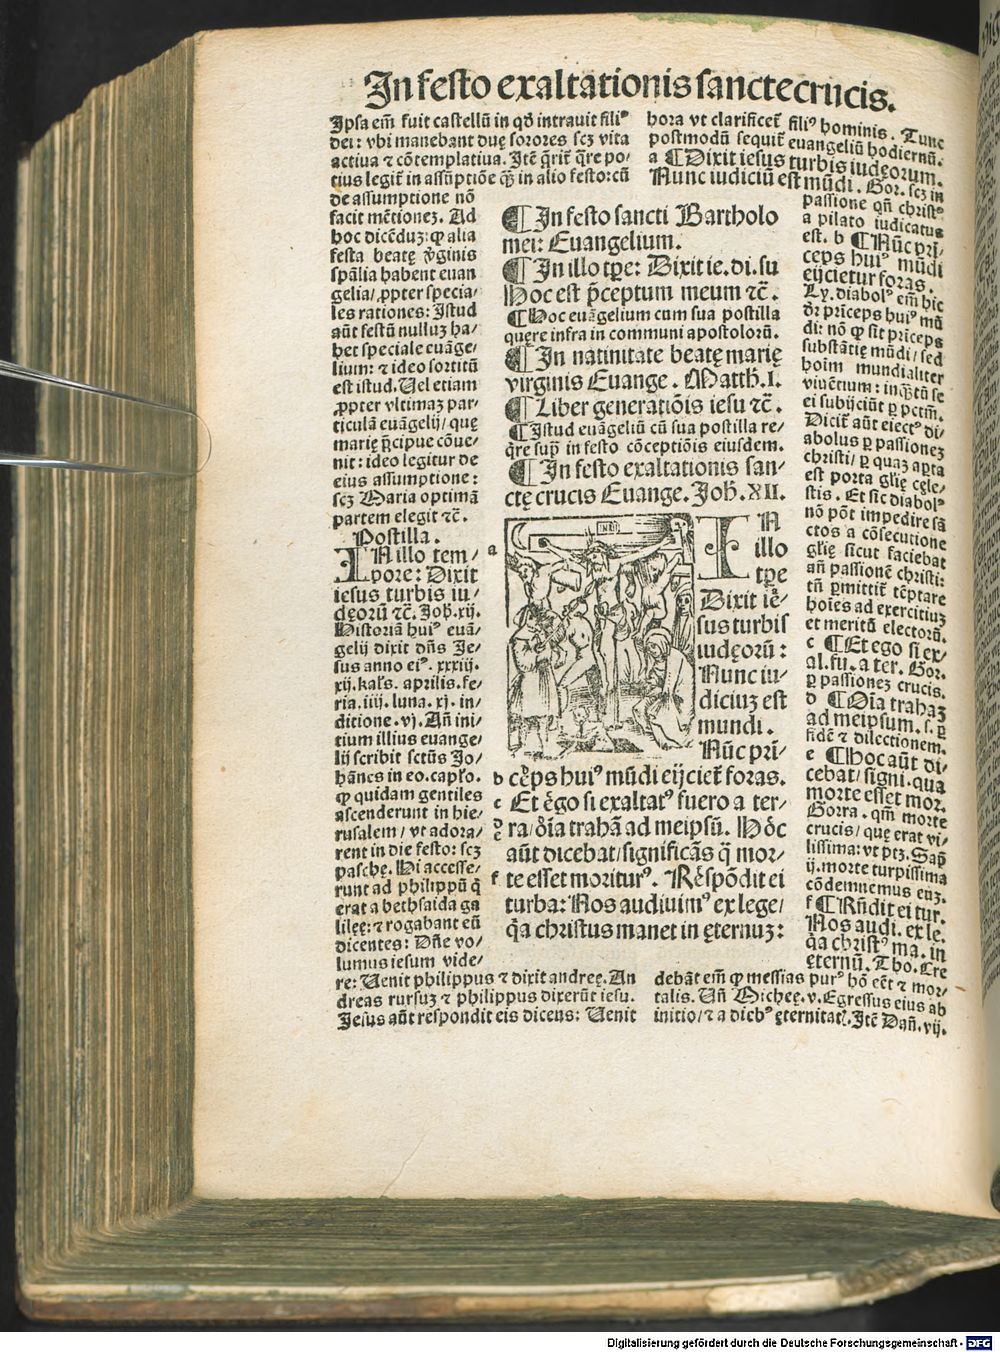 In festo exaltationis sancte crucis.
Ipsa em̄ fuit castellū in qd̄ intrauit filiꝰ
dei: vbi manebant duę sorores scꝫ vita
actiua ⁊ cōtemplatiua. Itē q̄rit̄ q̄re po⸗
tius legit̄ in assūptiōe ꝙ̄ in alio festo: cū
de assumptione nō
facit mētionez. Ad
hoc dicēduz: ꝙ alia
festa beatę v̄ginis
sp̄alia habent euan
gelia/ ꝓpter specia⸗
les rationes: Istud
aūt festū nulluz ha⸗
bet speciale euāge⸗
lium: ⁊ ideo sortitū
est istud. Uel etiam
ꝓpter vltimaz par⸗
ticulā euāgelij/ quę
marię p̄cipue cōue⸗
nit: ideo legitur de
eius assumptione:
scꝫ Maria optimā
partem elegit ⁊c̄.
Postilla.
IN illo tem⸗ a
pore: Dixit
iesus turbis iu⸗
dęorū ⁊c̄. Joh̄. xij.
Historiā huiꝰ euā⸗
gelij dixit dn̄s Je⸗
sus anno eiꝰ. xxxiij.
xij. kal's. aprilis. fe⸗
ria. iiij. luna. xj. in⸗
ditione. vj. Añ ini⸗
tium illius euange⸗
lij scribit sctūs Jo⸗
hānes in eo. caplō.
ꝙ quidam gentiles
ascenderunt in hie⸗
rusalem/ vt adora⸗
rent in die festo: scꝫ
paschę. Hi accesse⸗
runt ad philippū q̄
erat a bethsaida ga
lilęę: ⁊ rogabant eū
dicentes: Dn̄e vo⸗
lumus iesum vide⸗
re: Uenit philippus ⁊ dixit andreę. An
dreas rursuz ⁊ philippus dixerūt iesu.
Jesus aūt respondit eis dicens: Uenit
¶ In festo sancti Bartholo
mei: Euangelium.
¶ In illo tp̄e: Dixit ie. di. su
Hoc est p̄ceptum meum ⁊c̄.
¶ Hoc euāgelium cum sua postilla
quęre infra in communi apostolorū.
¶ In natiuitate beatę marię
virginis Euange. Matth. I.
¶ Liber generatiōis iesu ⁊c̄.
¶ Istud euāgeliū cū sua postilla re⸗
q̄re sup̄ in festo cōceptiōis eiusdem.
¶ In festo exaltationis san⸗
ctę crucis Euange. Joh̄. XII.
INRI
IN
illo
tp̄e
Dixit ie⸗
sus turbis
iudęorū:
Nunc iu⸗
diciuz est
mundi.
Nūc pri⸗
b ceps huiꝰ mūdi eijciet̄ foras.
c Et ego si exaltatꝰ fuero a ter⸗
d e ra/ oīa trahā ad meipsū. Hoc
aūt dicebat/ significās q̄ mor⸗
f te esset morituꝰ. Respōdit ei
turba: Nos audiuimꝰ ex lege/
q̄a christus manet in ęternuz:
hora vt clarificet̄ filiꝰ hominis. Tunc
postmodū sequit̄ euangeliū hodiernū.
a ¶ Dixit iesus turbis iudęorum.
Nunc iudiciū est mūdi. Gor. scꝫ in
passione qn̄ christꝰ
a pilato iudicatus
est. b ¶ Nūc pri⸗
ceps huiꝰ mūdi
eijcietur foras.
Ly. diabolꝰ em̄ hic
dr̄ princeps huiꝰ mū
di: nō ꝙ sit princeps
substātię mūdi/ sed
hoīm mundialiter
viuētium: inq̄tū se
ei subijciūt ꝑ pctm̄.
Dicit̄ aūt eiectꝰ di⸗
abolus ꝑ passionez
christi/ ꝑ quaz apta
est porta glię cęle⸗
stis. Et sic diabolꝰ
nō pōt impedire sā
ctos a cōsecutione
glię sicut faciebat
añ passionē christi:
tn̄ ꝑmittit̄ tēptare
hoīes ad exercitiuz
et meritū electorū.
c ¶ Et ego si ex⸗
al. fu. a ter. Gor.
ꝑ passionez crucis.
d ¶ Oīa trahaz
ad meipsum. s. ꝑ
fidē ⁊ dilectionem.
e ¶ Hoc aūt di⸗
cebat/ signi. qua
morte esset mor.
Gorra. qm̄ morte
crucis/ quę erat vi⸗
lissima: vt ptꝫ. Sap̄
ij. morte turpissima
cōdemnemus euz.
f ¶ Rn̄dit ei tur.
Nos audi. ex le.
q̄a christꝰ ma. in
ęternū. Tho. Cre
debāt em̄ ꝙ messias purꝰ hō eēt ⁊ mor⸗
talis. Un̄ Micheę. v. Egressus eius ab
initio/ ⁊ a diebꝰ ęternitat̄. Itē Dañ. vij.
Digitalisierung gefördert durch die Deutsche Forschungsgemeinschaft - DFG